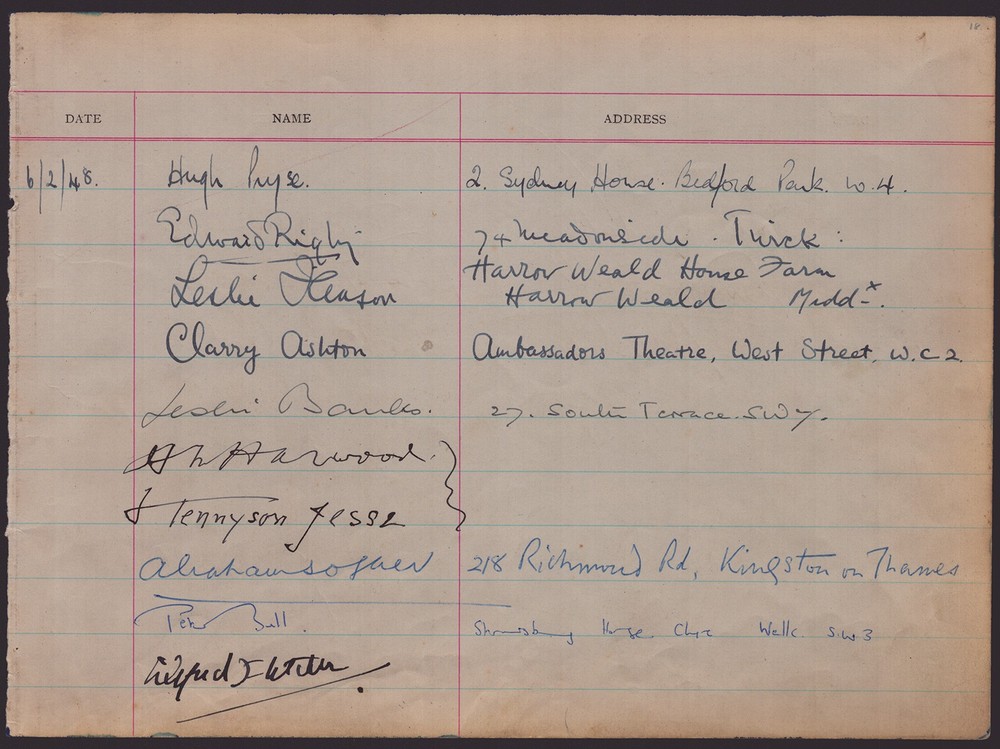 18
DATE NAME ADDRESS
6/2/48. Hugh Pryse. 2. Sydney House. Bedford Park. W.4.
Edward Rigby 74 Meadowside. Twick:
Harrow Weald House Farm
Leslie Henson Harrow Weald Midd-x.
Clarry Ashton Ambassadors Theatre, West Street, W.C2.
Leslie Banks. 27. South Terrace. SW7.
H M Harwood.
F Tennyson Jesse
Abraham Sofaer 218 Richmond Rd, Kingston on Thames
Peter Bull. Shrewsbury House. Walk. S.W3
Wilfred